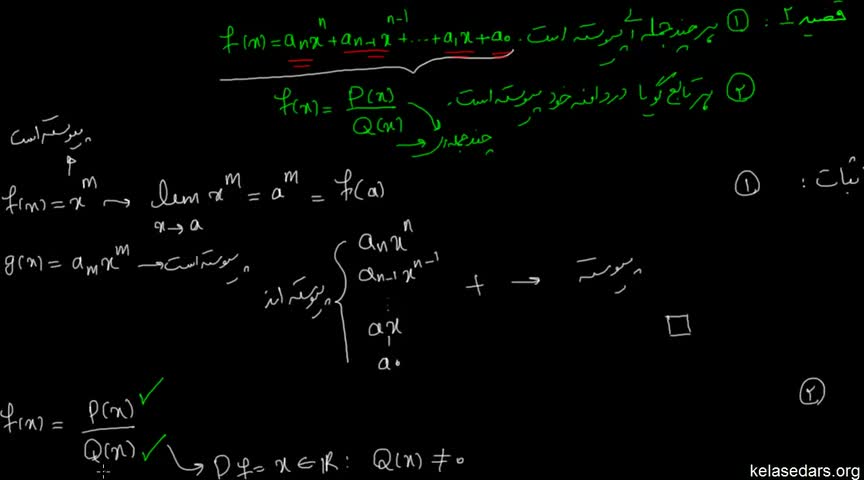 قضیه ۲: ① هر چندجمله ای پیوسته است. f(x) = aₙxⁿ + aₙ₋₁xⁿ⁻¹ + ... + a₁x + a₀
② هر تابع گویا در دامنه خود پیوسته است. f(x) = P(x)/Q(x)
چندجمله ای
پیوسته است
اثبات: ①
f(x) = xᵐ → lim x→a xᵐ = aᵐ = f(a)
g(x) = aₘxᵐ → پیوسته است
aₙxⁿ
aₙ₋₁xⁿ⁻¹
⋮
a₁x
a₀
پیوسته اند
+ → پیوسته
□
②
f(x) = P(x)/Q(x) ✓ ✓
→ D f = x ∈ ℝ : Q(x) ≠ 0
kelasedars.org